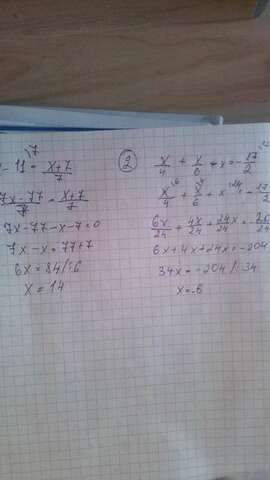 - 11 = x+7/7 \7
7x-77/7 = x+7/7
7x-77-x-7=0
7x-x=77+7
6x=84/:6
x=14
② x/4 + x/6 + x = -17/2
x/4 + x/6 + x = 17/2
6x/24 + 4x/24 + 24x/24 =
6x+4x+24x=-204
34x=-204/:34
x=-6